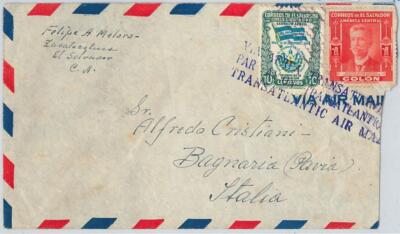 Felipe A Molina
El Salvador
C. A.
CORREOS DE EL SALVADOR
CORREOS DE EL SALVADOR
AMERICA CENTRAL
COLON
VIA AIR MAIL
PAR
TRANSATLANTIC AIR MAIL
Sr.
Alfredo Cristiani-
Bagnaria (Pavia)
Italia